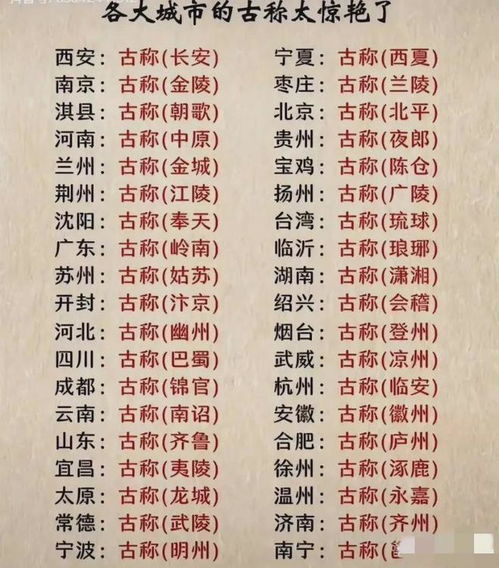 各大城市的古称太惊艳了
西安：古称(长安) 宁夏：古称(西夏)
南京：古称(金陵) 枣庄：古称(兰陵)
淇县：古称(朝歌) 北京：古称(北平)
河南：古称(中原) 贵州：古称(夜郎)
兰州：古称(金城) 宝鸡：古称(陈仓)
荆州：古称(江陵) 扬州：古称(广陵)
沈阳：古称(奉天) 台湾：古称(琉球)
广东：古称(岭南) 临沂：古称(琅琊)
苏州：古称(姑苏) 湖南：古称(潇湘)
开封：古称(汴京) 绍兴：古称(会稽)
河北：古称(幽州) 烟台：古称(登州)
四川：古称(巴蜀) 武威：古称(凉州)
成都：古称(锦官) 杭州：古称(临安)
云南：古称(南诏) 安徽：古称(徽州)
山东：古称(齐鲁) 合肥：古称(庐州)
宜昌：古称(夷陵) 徐州：古称(涿鹿)
太原：古称(龙城) 温州：古称(永嘉)
常德：古称(武陵) 济南：古称(齐州)
宁波：古称(明州) 南宁：古称(